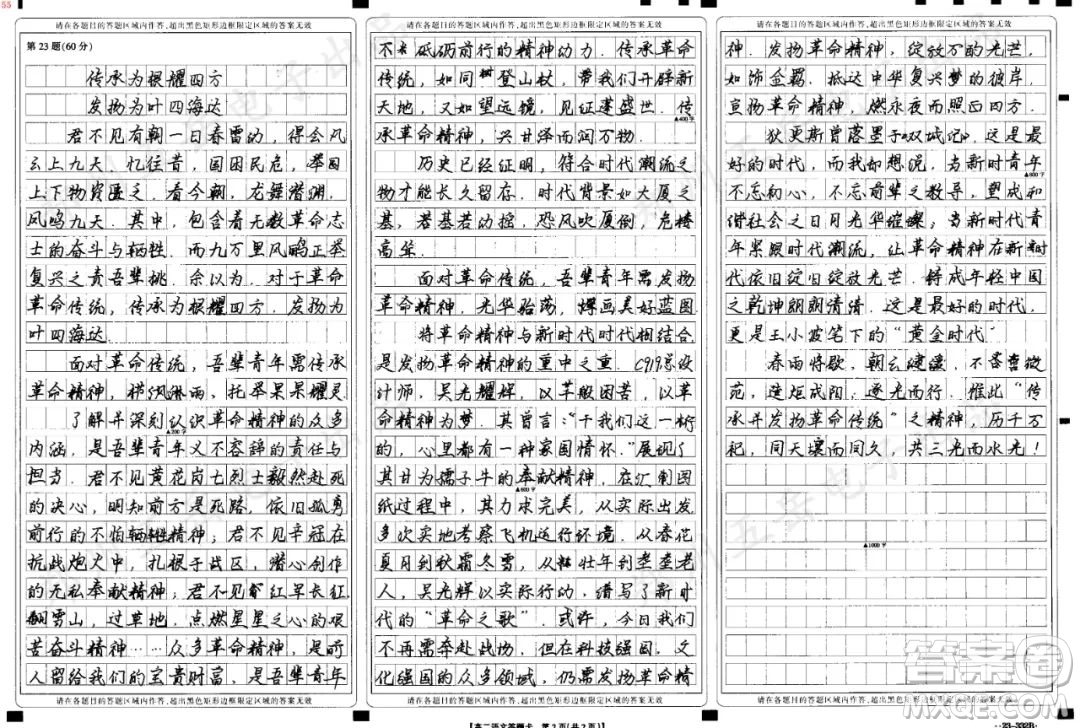 55
请在各题目的答题区域内作答,超出黑色矩形边框限定区域的答案无效
第23题(60分)
传承为根耀四方
发扬为叶四海达
君不见有朝一日春雷动，得会风
云上九天 忆往昔，国困民危，举国
上下物资匮乏，看今朝，龙舞潜渊，
凤鸣九天 其中，包含着无数革命志
士的奋斗与牺牲 而九万里风鹏正举
复兴之责吾辈挑 余以为，对于革命
革命传统，传承为根耀四方，发扬为
叶四海达
面对革命传统，吾辈青年需传承
革命精神，托举果果耀灵
了解并深刻认识革命精神的众多
▲200字
内涵，是吾辈青年义不容辞的责任与
担当 君不见黄花岗七烈士毅然赴死
的决心，明知前方是死路，依旧孤勇
前行的不怕牺牲精神；君不见辛冠在
抗战炮火中，扎根于战区，潜心创作
的无私奉献精神；君不见红军长征
翻雪山，过草地，点燃星星之心的艰
苦奋斗精神……众多革命精神，是前
人留给我们的宝贵财富，是吾辈青年
请在各题目的答题区域内作答,超出黑色矩形边框限定区域的答案无效
请在各题目的答题区域内作答,超出黑色矩形边框限定区域的答案无效
砥砺前行的精神动力 传承革命
传统，如同树登山杖，带我们开辟新
天地，又如望远镜，见证蓬盛世 传
▲400字
承革命精神，兴甘泽而润万物
历史已经证明，符合时代潮流之
物才能长久留存，时代背景如大厦之
基，若基若动摇，恐风吹厦倒，危楼
高华
面对革命传统，吾辈青年需发扬
革命精神，光华骀荡，美好蓝图
将革命精神与新时代时代相结合
是发扬革命精神的重中之重 C919总设
计师，吴光辉，以革般困苦，以革
命精神为梦 其曾言："干我们这一行
的，心里都有一种家国情怀"展现了
其甘为孺子牛的奉献精神，在汇制图
▲600字
纸过程中，其力求完美，从实际出发
多次实地考察飞机运行环境 从春花
夏月到秋霜冬雪，从壮年到垄垄老
人，吴光辉以实际行动，谱写了新时
代的"革命之歌" 或许，今日我们
不再需奔赴战场，但在科技强国，文
化强国的众多领域，仍需传承发扬精
请在各题目的答题区域内作答,超出黑色矩形边框限定区域的答案无效
【高二语文答题卡 第2页(共2页)】
请在各题目的答题区域内作答,超出黑色矩形边框限定区域的答案无效
神 发扬革命精神，绽放万的光芒
如饰金羁 抵达中华复兴梦的彼岸，
宣扬革命精神，燃永夜而照四方
狄更斯曾落墨于《双城记》 这是最
好的时代，而我却想说，当新时青年
▲800字
不忘初心，不忘前辈之教导，塑成和
谐社会之日月光华璀璨；当新时代青
年紧跟时代潮流，让革命精神在新时
代依旧绽旧绽放光芒 铸成年轻中国
之乾坤朗朗清清 这是最好的时代，
更是王小波笔下的"黄金时代"
春雨将歇，朝云叆叇，不
苑，逐光而行 推此"传
承并发扬革命传统"之精神，历千万
祀，同天壤而同久，共三光而永光！
▲1000字
请在各题目的答题区域内作答,超出黑色矩形边框限定区域的答案无效
答案圈
23-332B